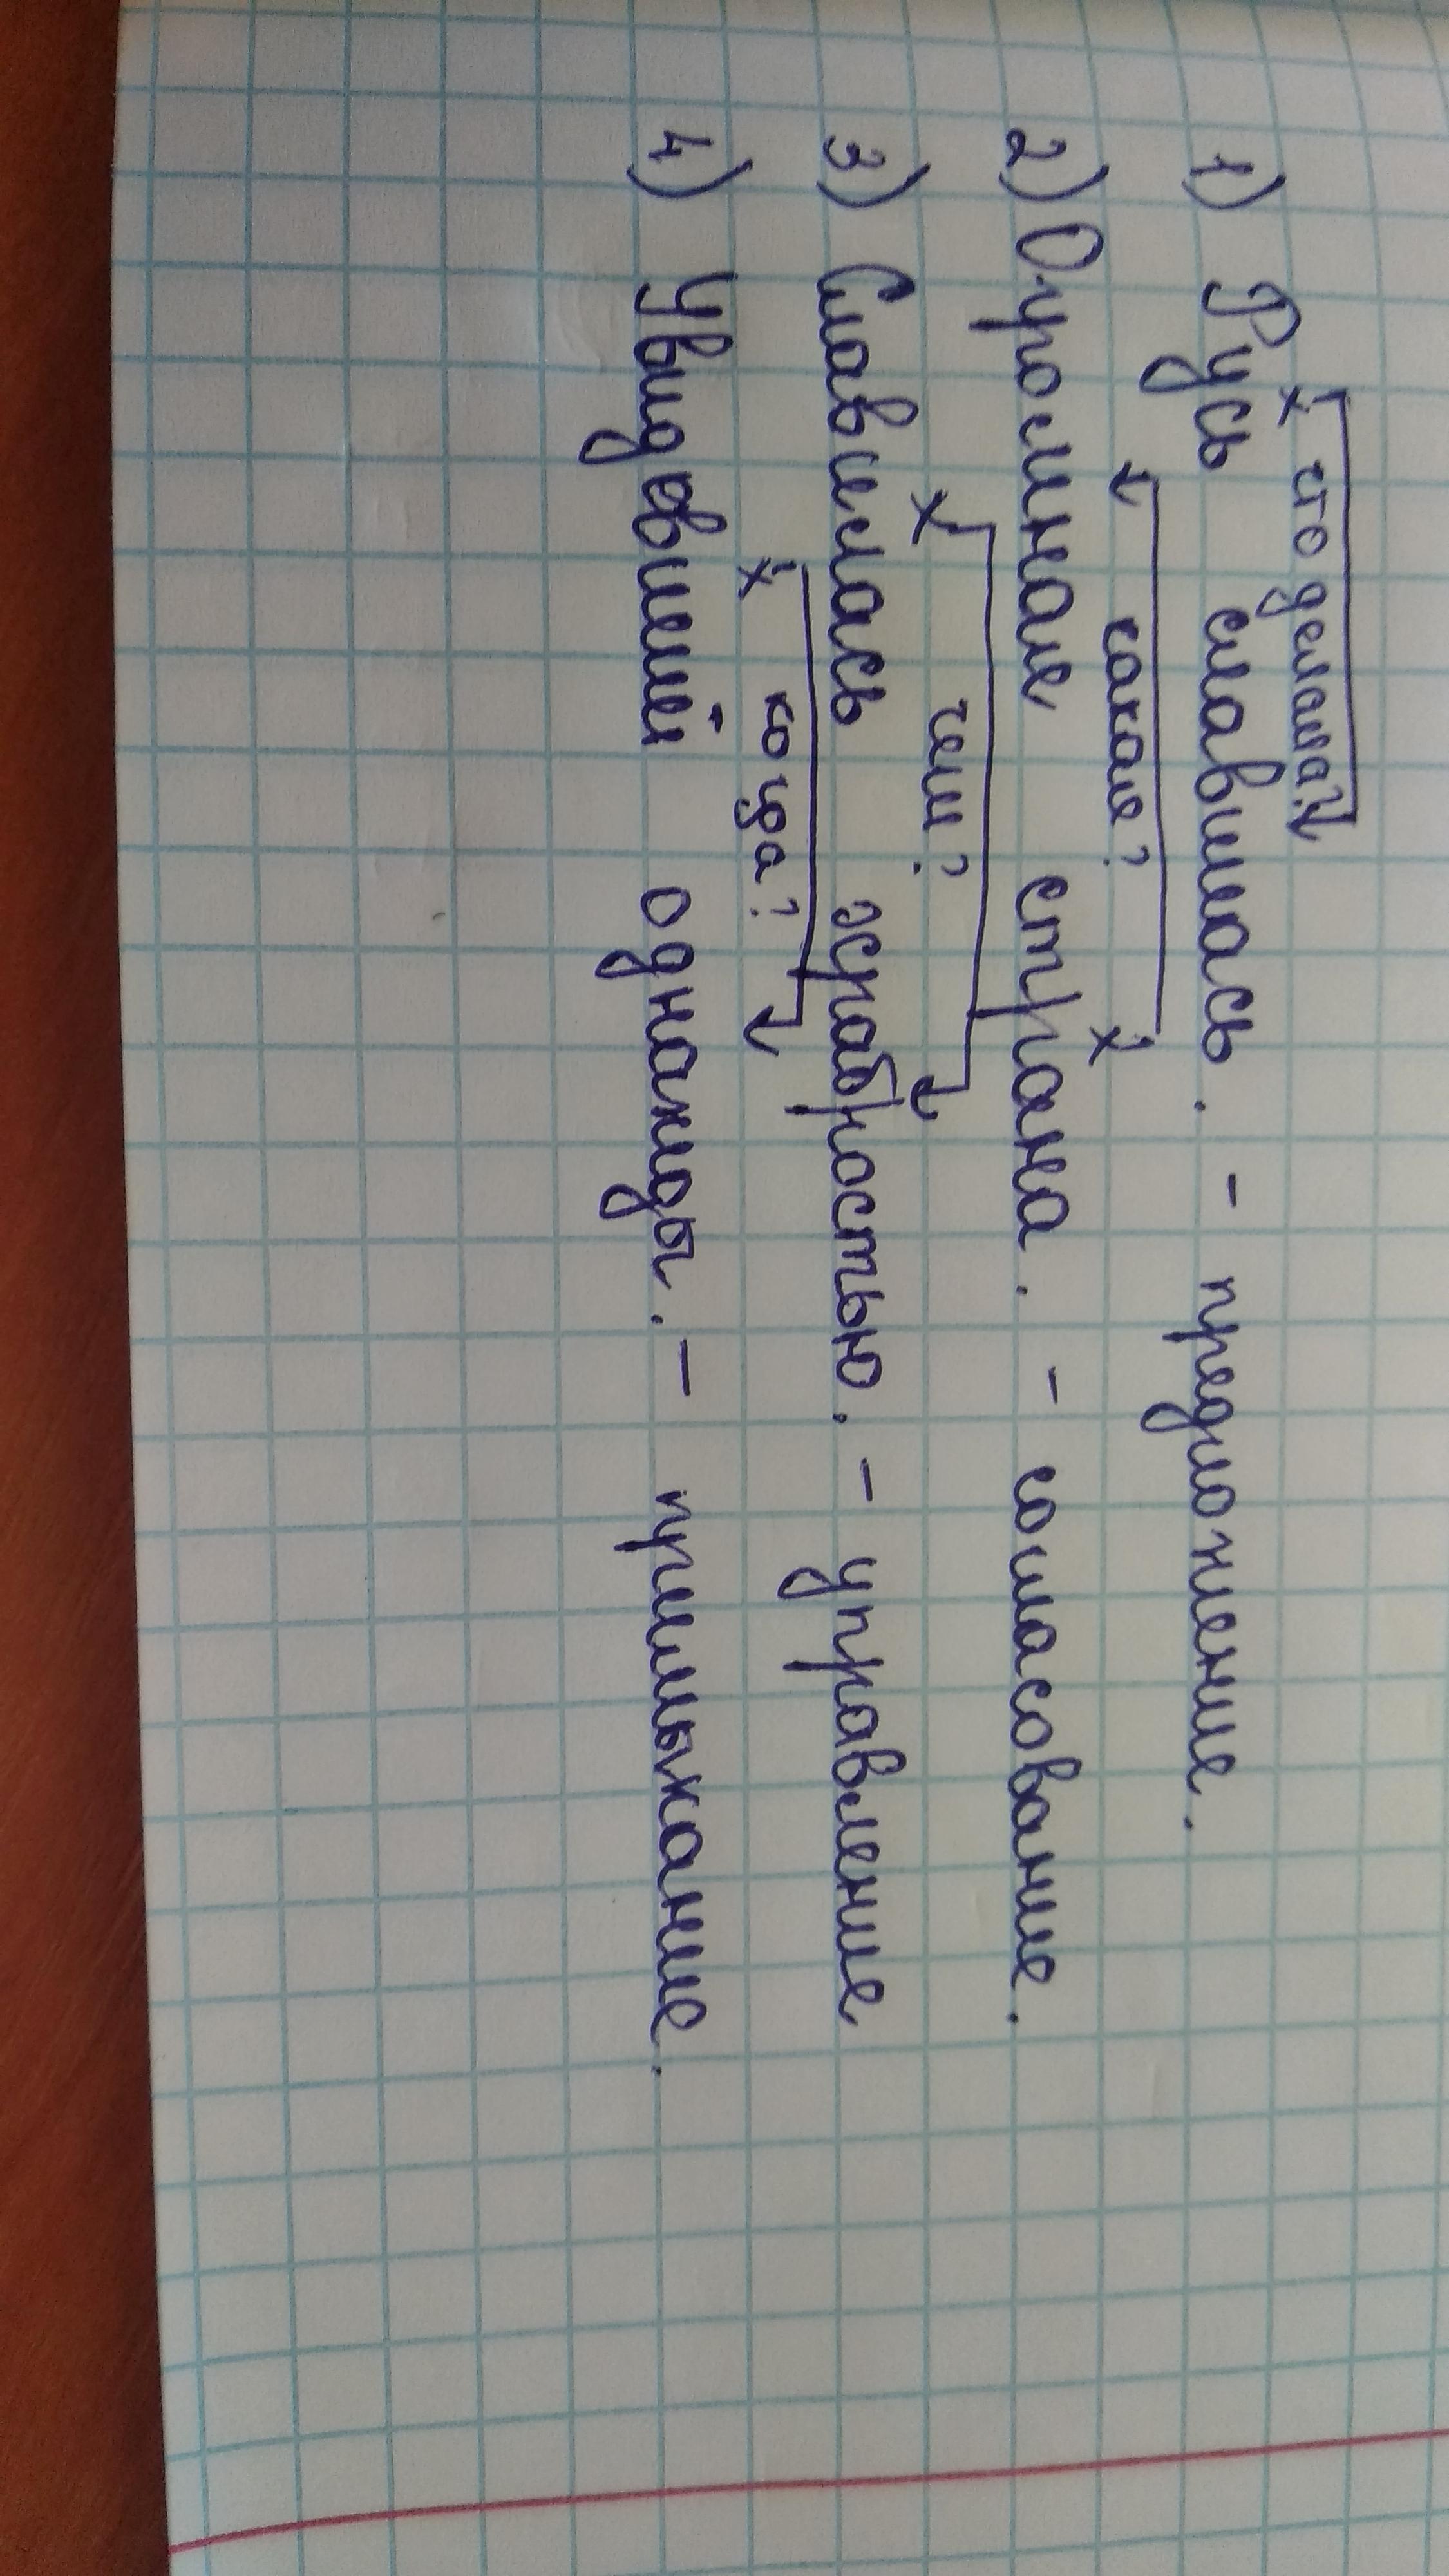 х что делала?
1) Русь славилась. - предложение.
какая? х
2) Огромная страна. - согласование.
х чем?
3) Славилась храбростью. - управление
х когда?
4) Увидевший однажды. - примыкание.